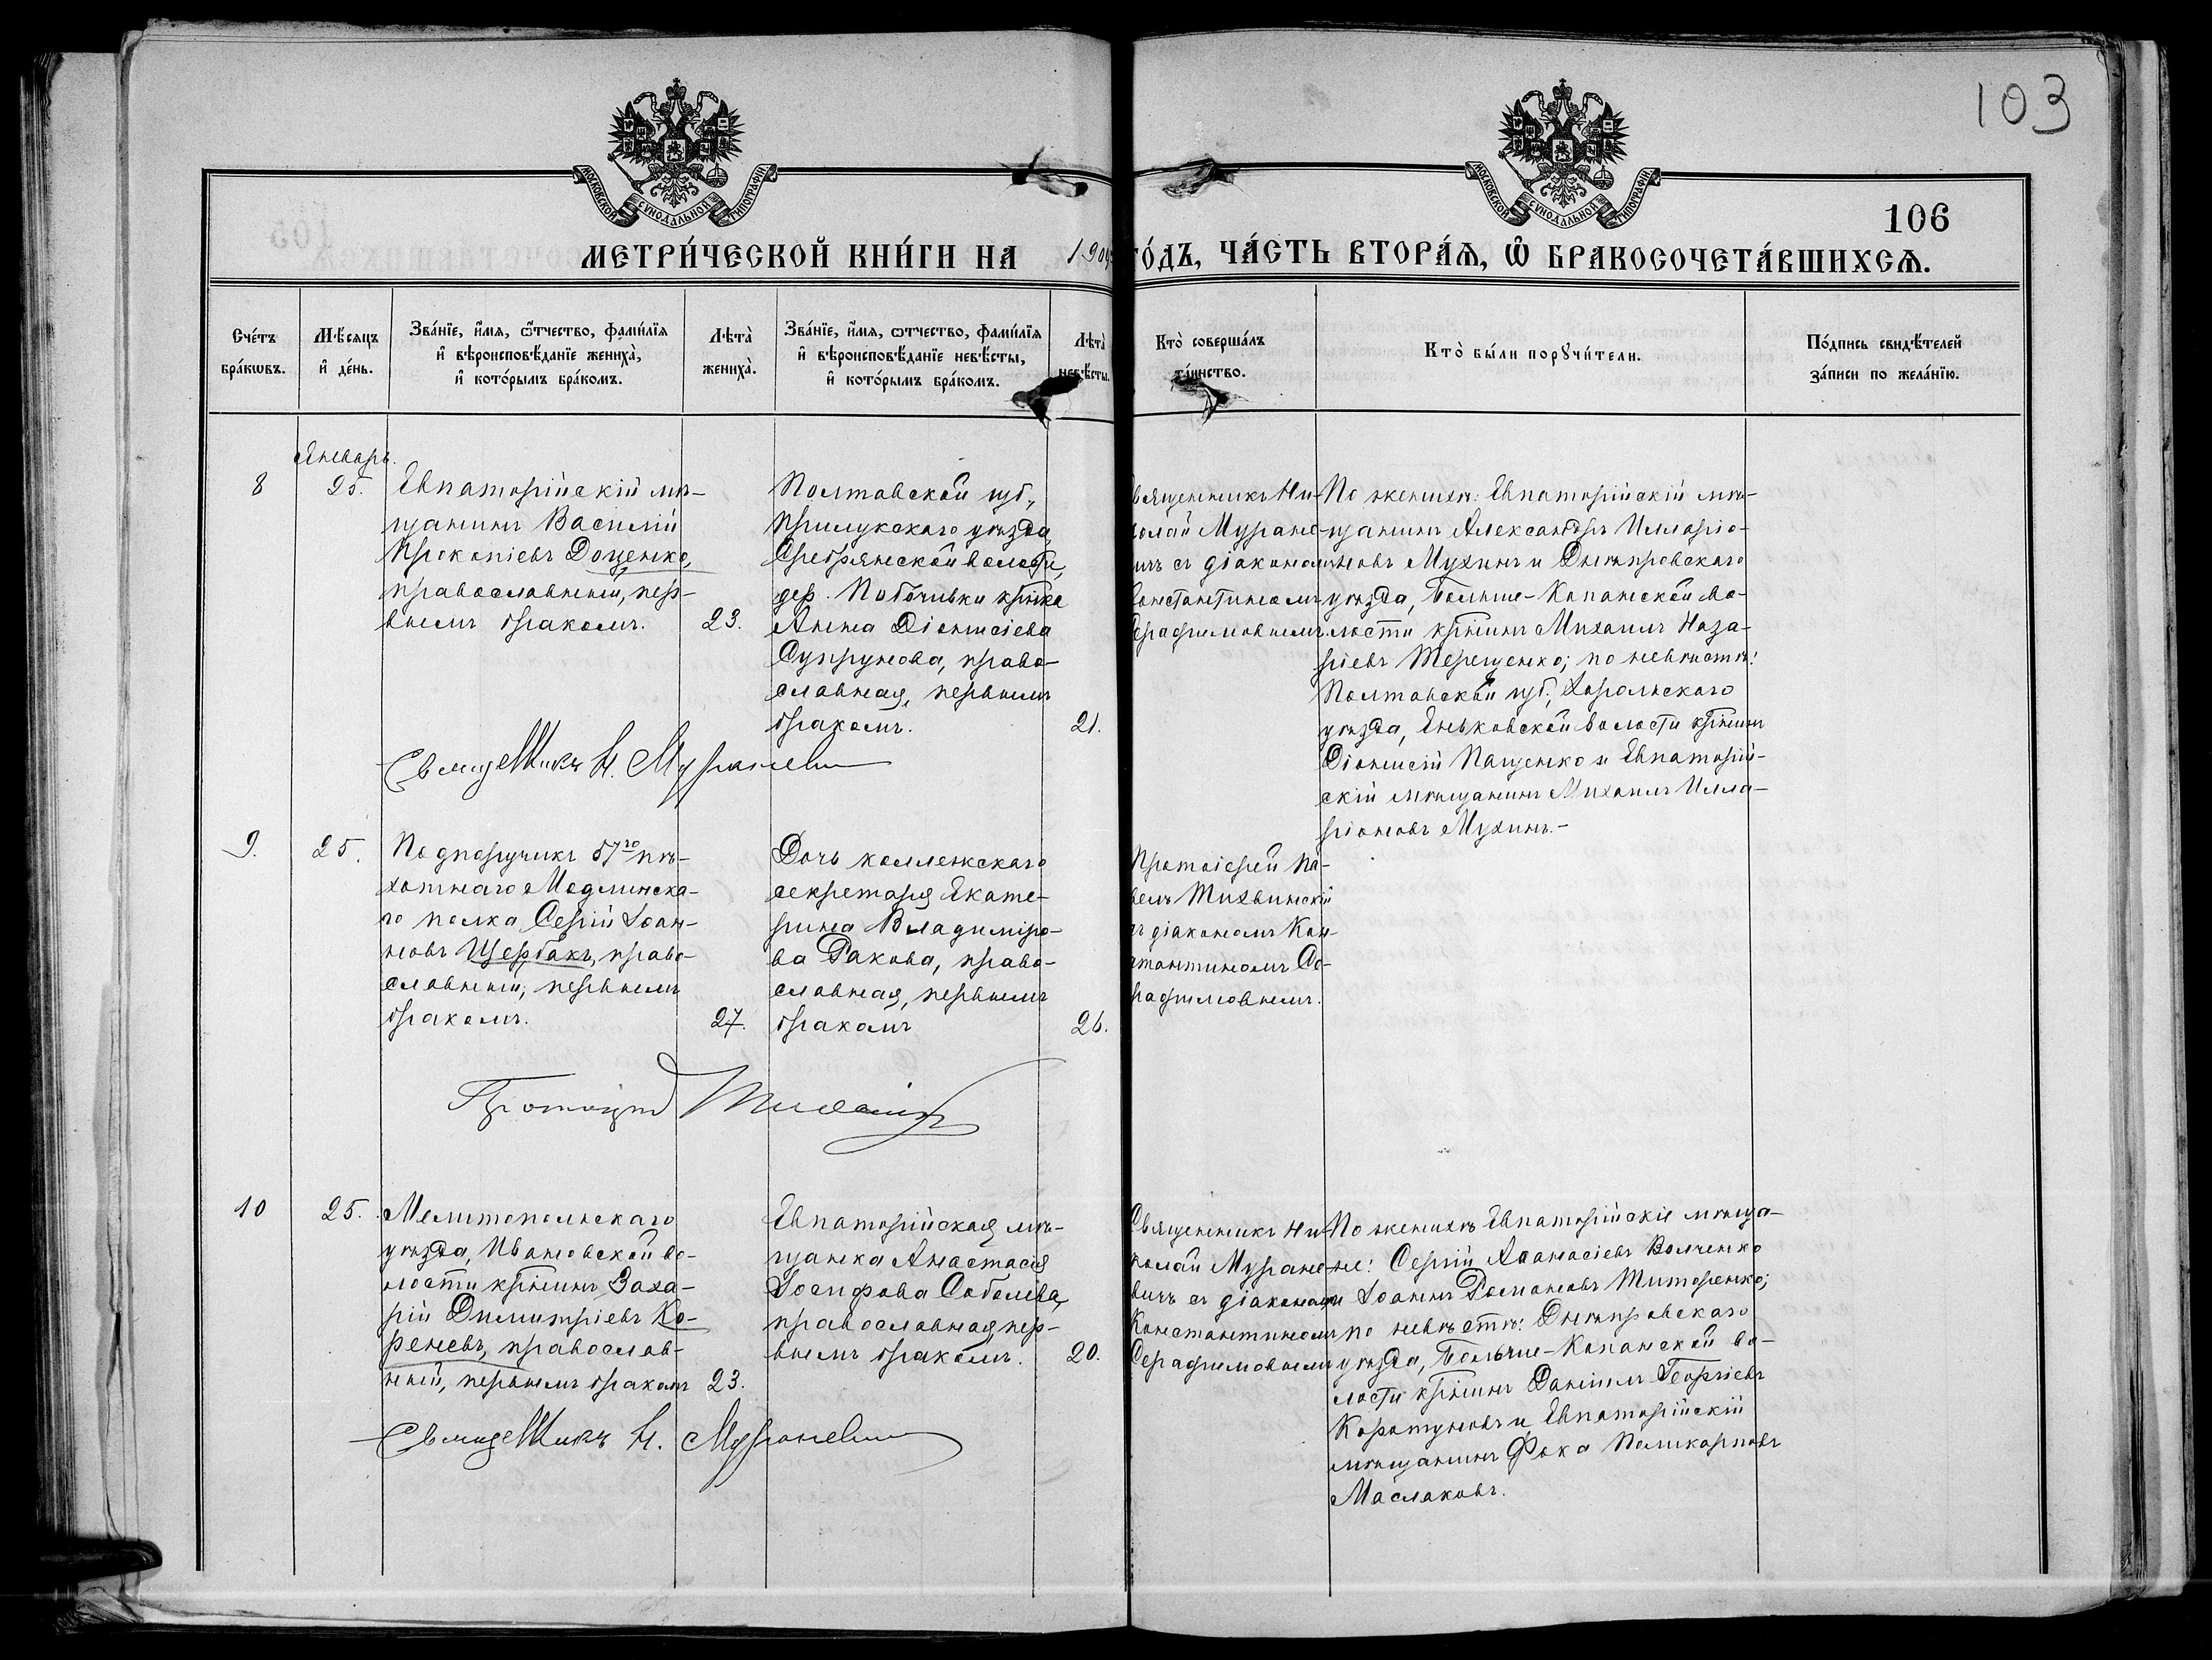 103
МОСКОВСКОЙ СУНОДАЛЬНОЙ ТИПОГРАФІИ
МОСКОВСКОЙ СУНОДАЛЬНОЙ ТИПОГРАФІИ
106
МЕТРИ́ЧЕСКОЙ КНИ́ГИ НА 190
ГО́ДЪ, ЧА́СТЬ ВТОРА́Ѧ, Ѽ БРАКОСОЧЕТА́ВШИХСѦ.
Сче́тъ
бра́кѡвъ.
Мѣ́сѧцъ
и҆ де́нь.
Зва́нїе, и҆́мѧ, ѻ҆́тчество, фами́лїѧ
и҆ вѣроисповѣ́данїе жениха̀,
и҆ кото́рымъ бра́комъ.
Лѣта̀
жениха̀.
Зва́нїе, и҆́мѧ, ѻ҆тчество, фами́лїѧ
и҆ вѣроисповѣ́данїе невѣ́сты,
и҆ кото́рымъ бра́комъ.
Лѣта̀
невѣ́сты.
Кто̀ соверша́лъ
та́инство.
Кто̀ бы́ли порꙋчи́тели.
По́дпись свидѣ́телей
за́писи по жела́нїю.
Январь.
8
25.
Евпаторійскій мѣ-
щанинъ Василій
Прокопіевъ Доценко,
православный, пер-
вымъ бракомъ.
23.
Полтавской губ.,
Прилукскаго уѣзда,
Сребрянской волости,
дер. Поточивки кр-нка
Анна Діонисіева
Супрунова, право-
славная, первымъ
бракомъ.
21.
вященникъ Ни-
колай Муране-
ичъ съ діакономъ
Константиномъ
Серафимовымъ.
По женихѣ: Евпаторійскій мѣ-
щанинъ Александръ Илларіо-
новъ Мухинъ и Днѣпровскаго
уѣзда, Больше-Копанской во-
лости кр-нинъ Михаилъ Наза-
ріевъ Терещенко; по невѣстѣ:
Полтавской губ., Хорольскаго
уѣзда, Еньковской волости кр-нинъ
Діонисій Пащенко и Евпаторій-
скій мѣщанинъ Михаилъ Илла-
ріоновъ Мухинъ.-
Священникъ Н. Мураневичъ
9.
25.
Подпоручикъ 57го пѣ-
хотнаго Модлинска-
го полка Сергій Іоан-
новъ Щербакъ, право-
славный, первымъ
бракомъ.
27.
Дочь коллежскаго
секретаря Екате-
рина Владиміро-
ва Ракова, право-
славная, первымъ
бракомъ
26.
Протоіерей Па-
велъ Тихвинскій
съ діакономъ Кон-
стантиномъ Се-
рафимовымъ.
Протоіерей Тихвинскій
10
25.
Мелитопольскаго
уѣзда, Ивановской во-
лости кр-нинъ Заха-
рій Димитріевъ Ко-
реневъ, православ-
ный, первымъ бракомъ
23.
Евпаторійская мѣ-
щанка Анастасія
Іосифова Соболева,
православная, пер-
вымъ бракомъ.
20.
Священникъ Ни-
колай Муране-
вичъ съ діакономъ
Константиномъ
Серафимовымъ
По женихѣ Евпаторійскіе мѣща-
не: Сергій Аѳанасіевъ Волченко
и Іоаннъ Романовъ Титоренко;
по невѣстѣ: Днѣпровскаго
уѣзда, Больше-Копанской во-
лости кр-нинъ Даніилъ Георгіевъ
Коротуновъ и Евпаторійскій
мѣщанинъ Фока Поликарповъ
Маслаковъ.
Священникъ Н. Мураневичъ